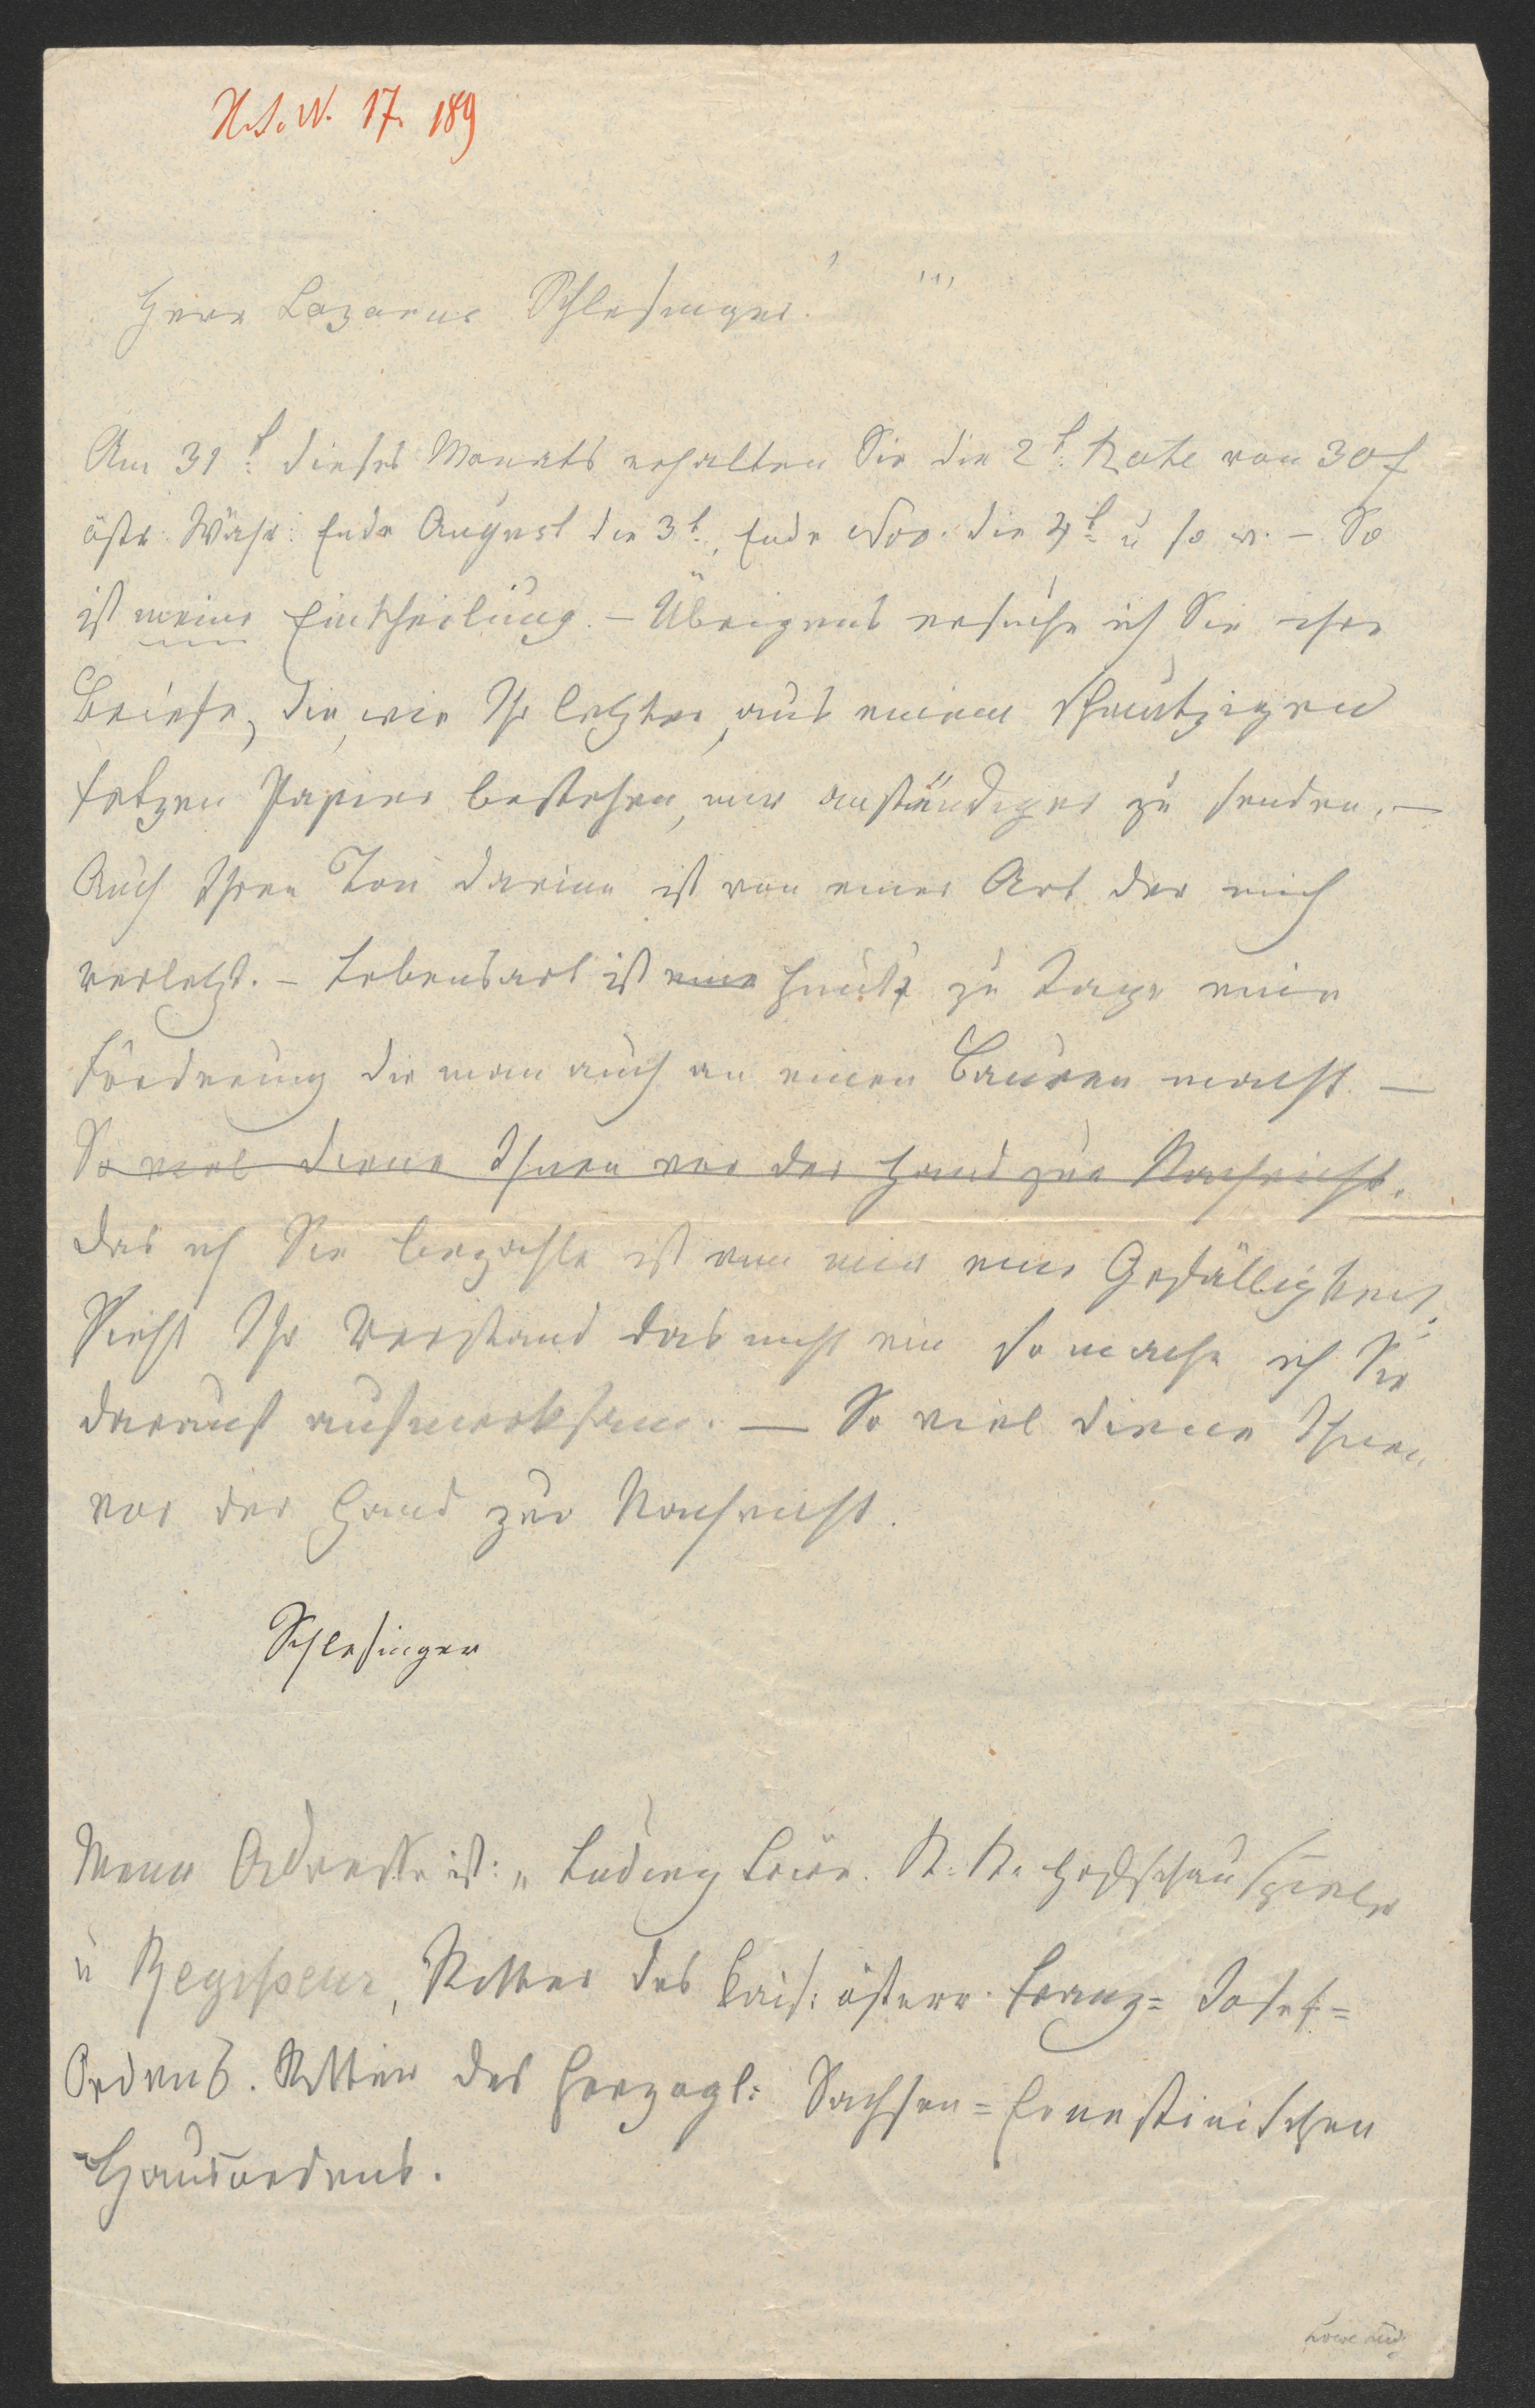 H.I.N. 17. 189
Herr Lazarus Schlesinger!
Am 31t. dieses Monats erhalten Sie die 2t. Rate von 30 f
östr. Währ. Ende August die 3t., Ende Nov. die 4t. u so w. – So
ist meine Eintheilung. – Übrigens ersuche ich Sie ihre
Briefe, die, wie Ihr letzter, aus einem schmutzigen
Fetzen Papier bestehen, mir anständiger zu senden. –
Auch Ihren Ton darinn ist von einer Art der mich
verletzt. – Lebensart ist eine heut zu Tage eine
Forderung die man auch an einen Bauren macht. –
So viel diene Ihnen vor der Hand zur Nachricht.
Das ich Sie bezahle ist von mir eine Gefälligkeit.
Sieht Ihr Verstand das nicht ein so mache ich Sie
darauf aufmerksam. – So viel diene Ihnen
vor der Hand zur Nachricht.
Schlesinger
Meine Adresse ist: „Ludwig Löwe. K. K. Hofschauspieler
u Regisseur, Ritter des kais: österr. Franz= Josef=
Ordens. Ritter des Herzogl: Sachsen=Ernestinischen
Hausordens.
Löwe Ludw.